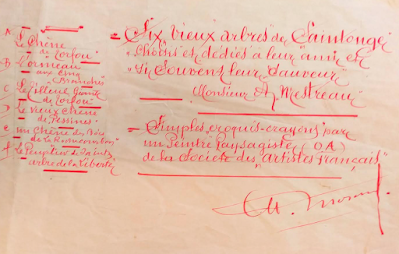 A Le Chêne
de "Torfou"
B L'ormeau
aux cinq
Branches
C Le Tilleul Géant
de Torfou
D Le Vieux Chêne
de Pessines
e un Chêne du Bois
de la
f Le Peuplier de Saintes
arbre de la Liberté
= Six vieux arbres de Saintonge
choisis et dédiés à leur ami et
Souvent leur Sauveur
Monsieur A. Mestreau
= Simples croquis-crayons par
un Peintre Paysagiste (O.A.)
de la Société des "Artistes Français"